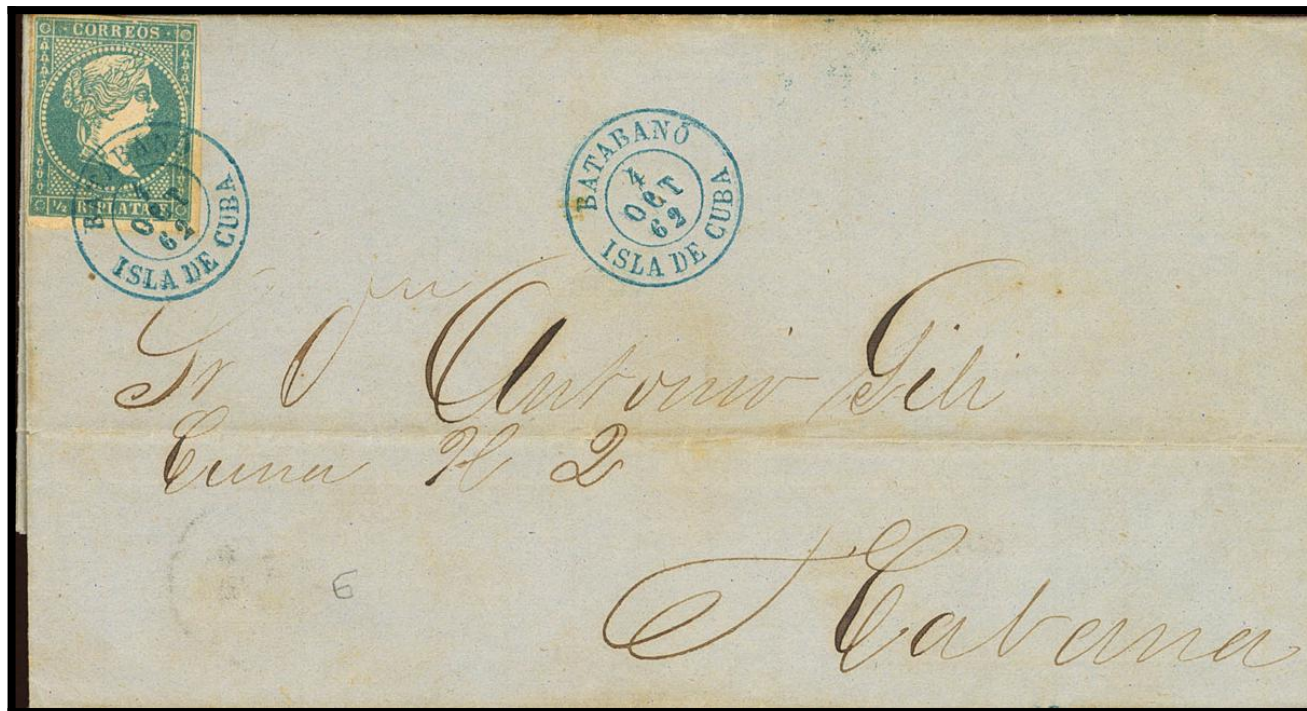 CORREOS
½ Rl PLATA F
BATABANÓ
4
OCT
62
ISLA DE CUBA
BATABANÓ
4
OCT
62
ISLA DE CUBA
Sr Dn Antonio Gili
Cuna N 2
Habana
6